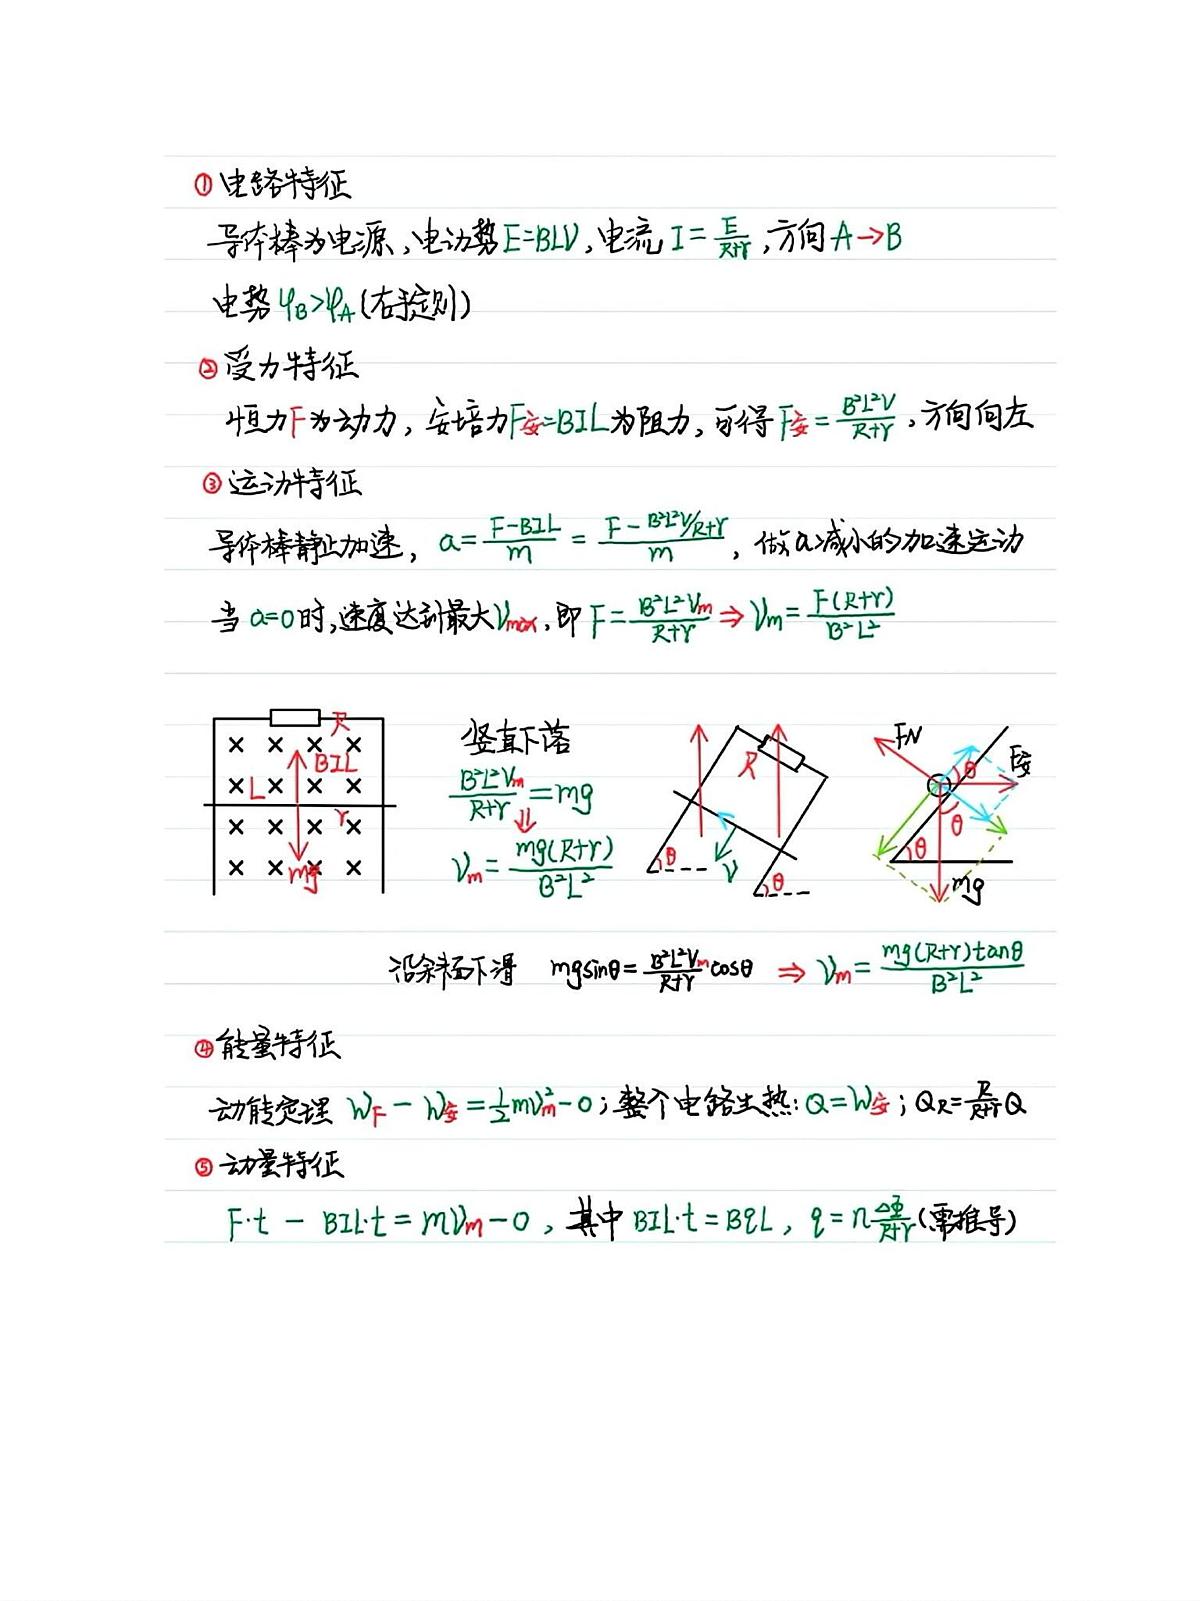 ①电路特征
导体棒为电源,电动势E=BLV,电流 I=E/(R+r),方向A→B
电势φB>φA(右手定则)
②受力特征
恒力F为动力,安培力F安=BIL为阻力,可得F安=B²L²V/(R+r),方向向左
③运动特征
导体棒静止加速,a=(F-BIL)/m=(F-B²L²V/R+r)/m,做a减小的加速运动
当a=0时,速度达到最大Vmax,即F=B²L²Vm/(R+r)⇒Vm=F(R+r)/(B²L²)
R
BIL
L
r
mg
竖直下落
B²L²Vm/(R+r)=mg
⇓
Vm=mg(R+r)/(B²L²)
R
θ
V
θ
FN
F安
θ
θ
θ
mg
沿斜面下滑 mgsinθ=B²L²Vm/(R+r)cosθ ⇒ Vm=mg(R+r)tanθ/(B²L²)
④能量特征
动能定理 WF-W安=½mVm²-0;整个电路生热:Q=W安;QR=R/(R+r)Q
⑤动量特征
F·t-BIL·t=mVm-0,其中BIL·t=BqL,q=nΔΦ/(R+r)(需推导)